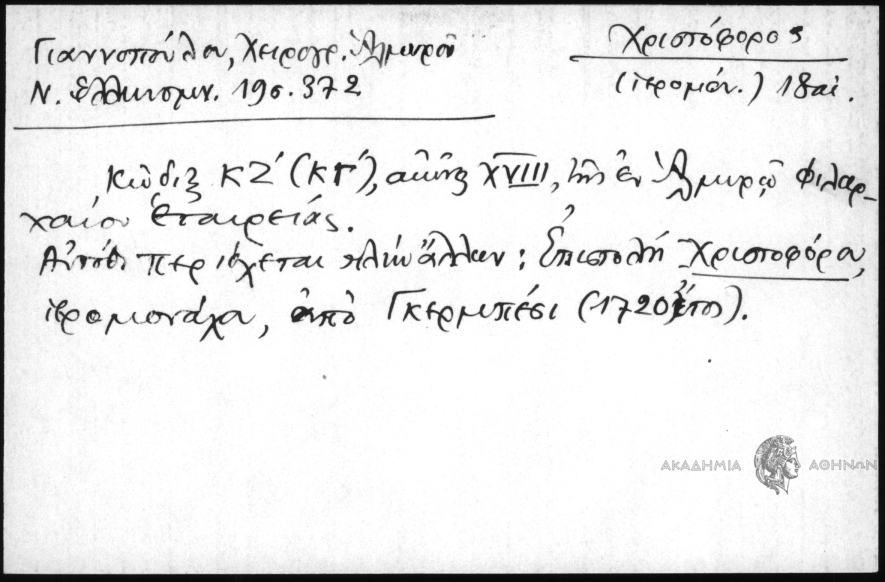 Γιαννοπούλου, Χειρογρ. Ἁλμυροῦ
Ν. Ἑλληνομν. 19σ. 372
Χριστόφορος
(ἱερομόν.) 18 αἰ.
Κῶδιξ ΚΖ΄ (ΚΓ΄), αἰῶνος XVIII, τῆς ἐν Ἁλμυρῷ Φιλαρ-
χαίου Ἑταιρείας.
Αὐτόθι περιέχεται πλὴν ἄλλων: Ἐπιστολὴ Χριστοφόρου,
ἱερομονάχου, ἀπὸ Γκερμπέσι (1720 ἔτος).
ΑΚΑΔΗΜΙΑ ΑΘΗΝΩΝ